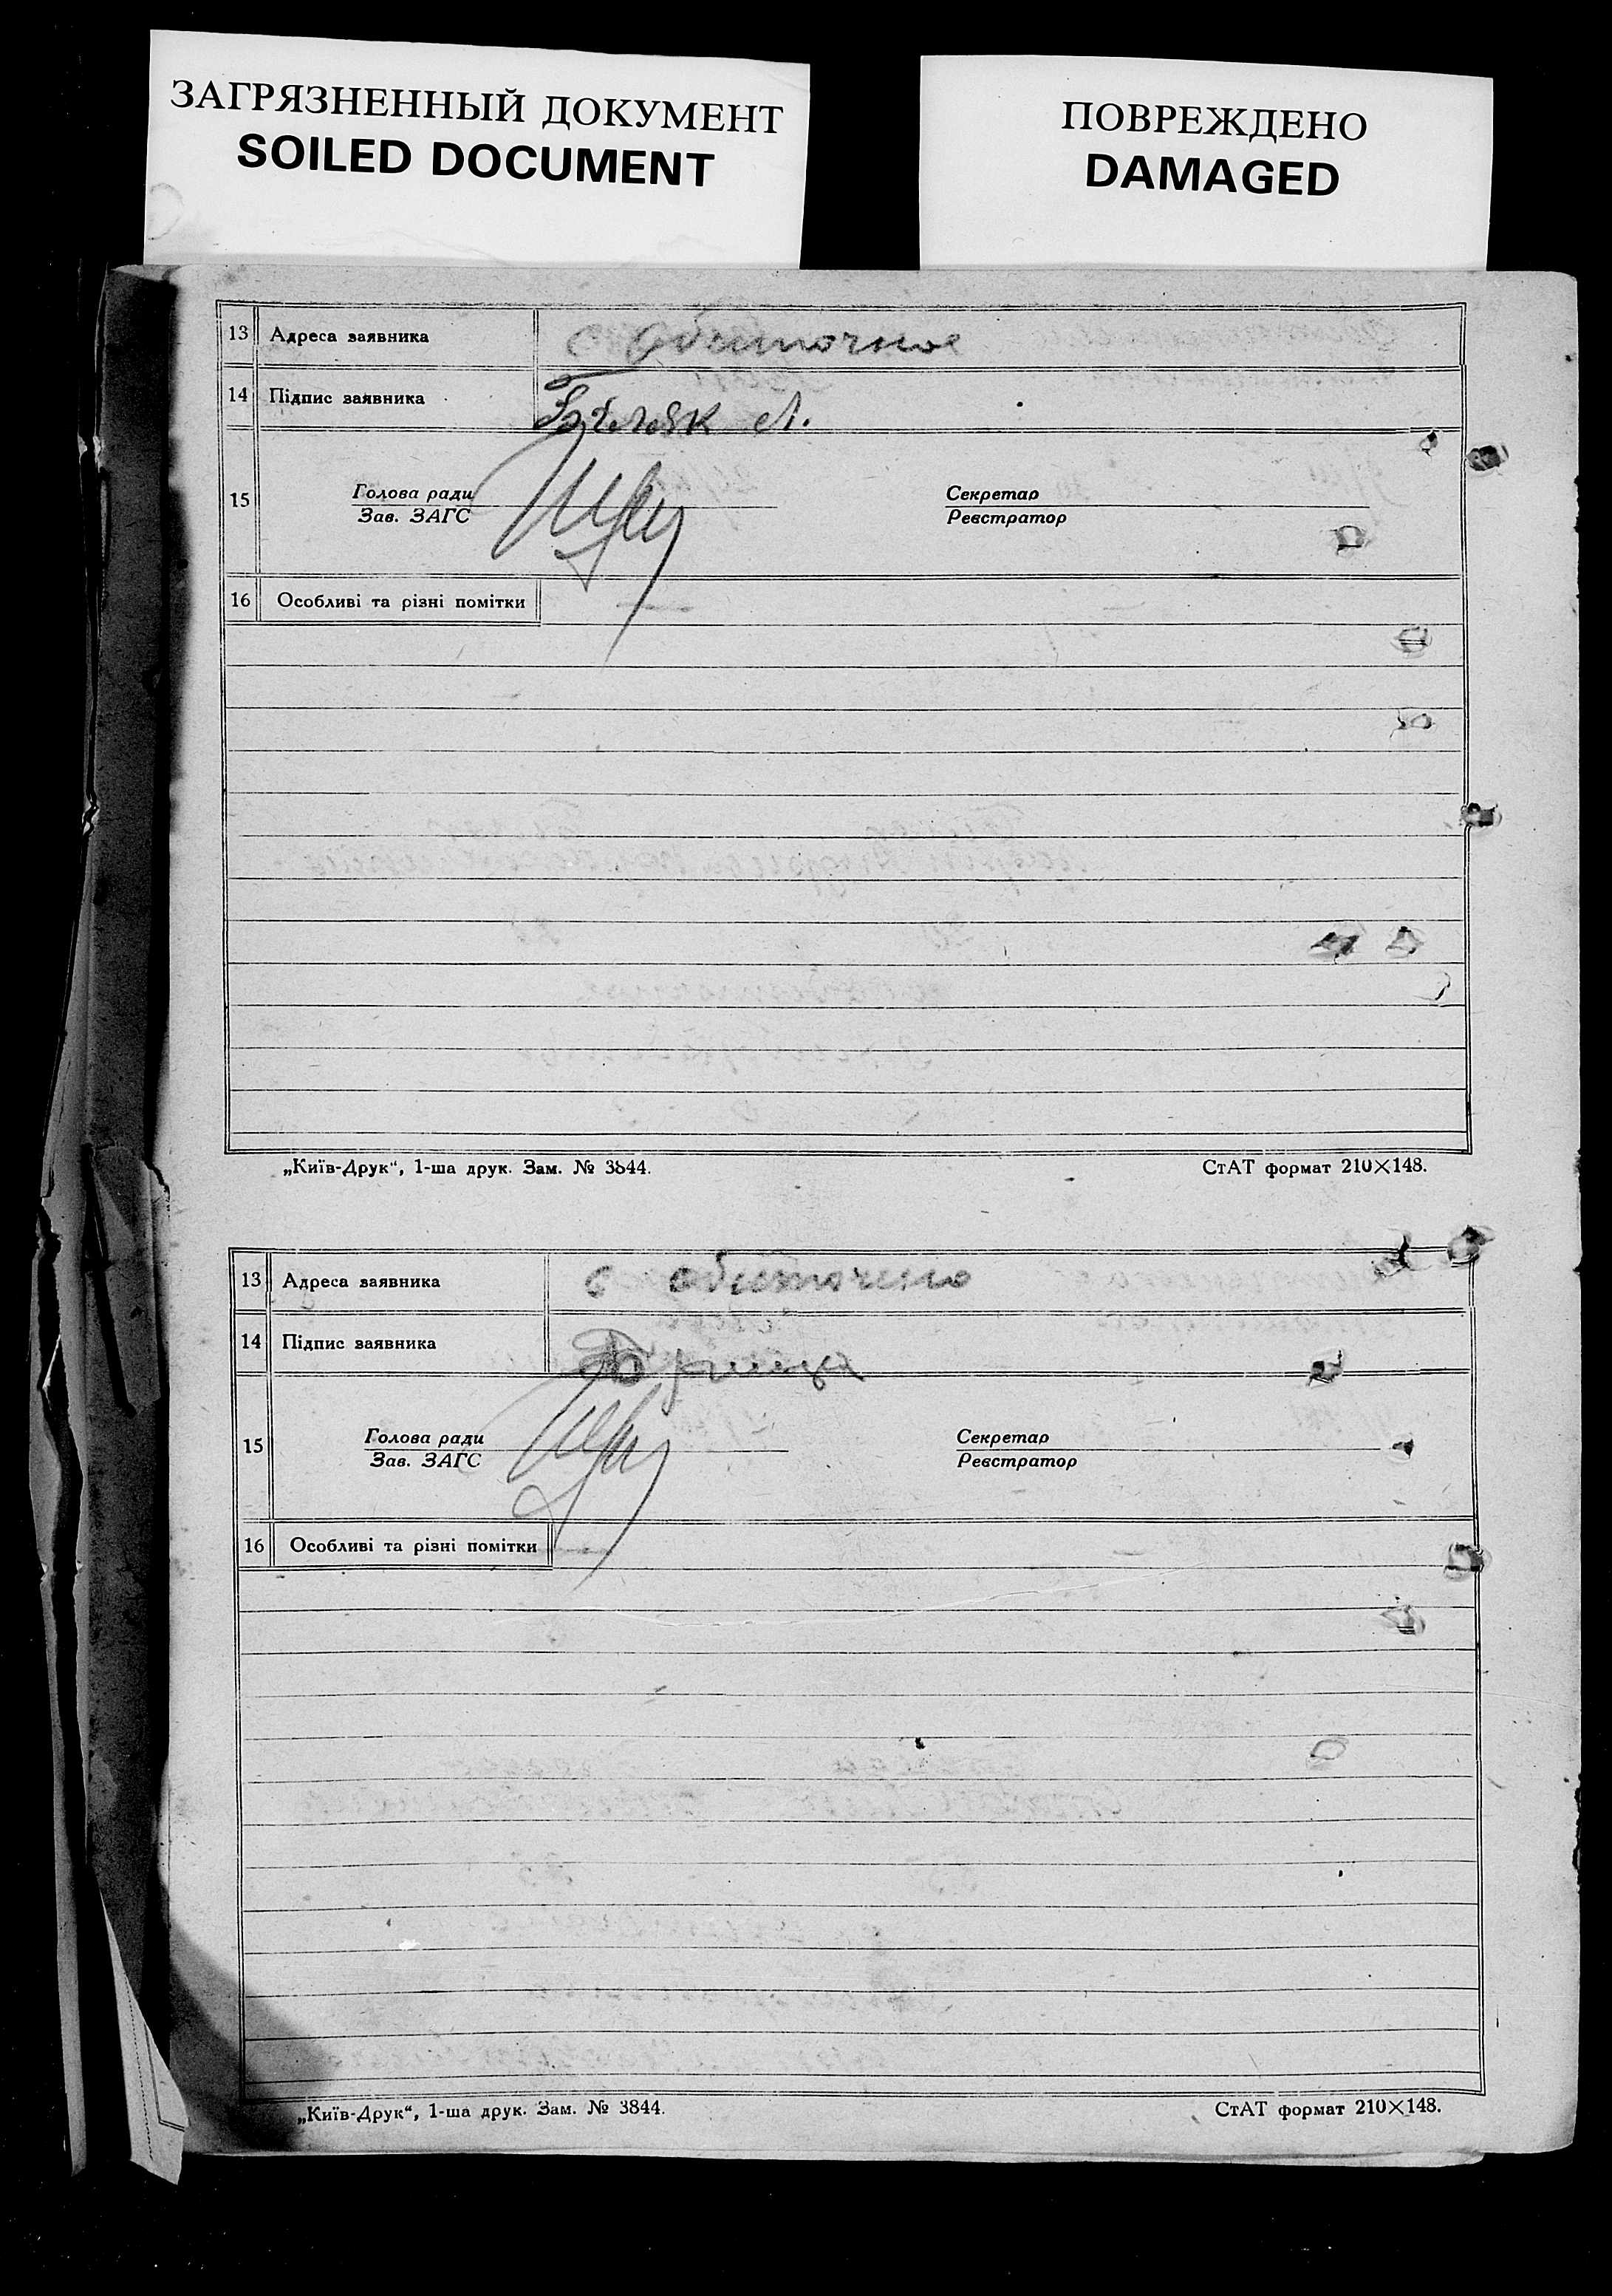 ЗАГРЯЗНЕННЫЙ ДОКУМЕНТ
SOILED DOCUMENT
ПОВРЕЖДЕНО
DAMAGED
13 Адреса заявника с
14 Підпис заявника
15 Голова ради Секретар
Зав. ЗАГС Реєстратор
16 Особливі та різні помітки
„Київ-Друк“, 1-ша друк. Зам. № 3844. СтАТ формат 210×148.
13 Адреса заявника с
14 Підпис заявника
15 Голова ради Секретар
Зав. ЗАГС Реєстратор
16 Особливі та різні помітки
„Київ-Друк“, 1-ша друк. Зам. № 3844. СтАТ формат 210×148.